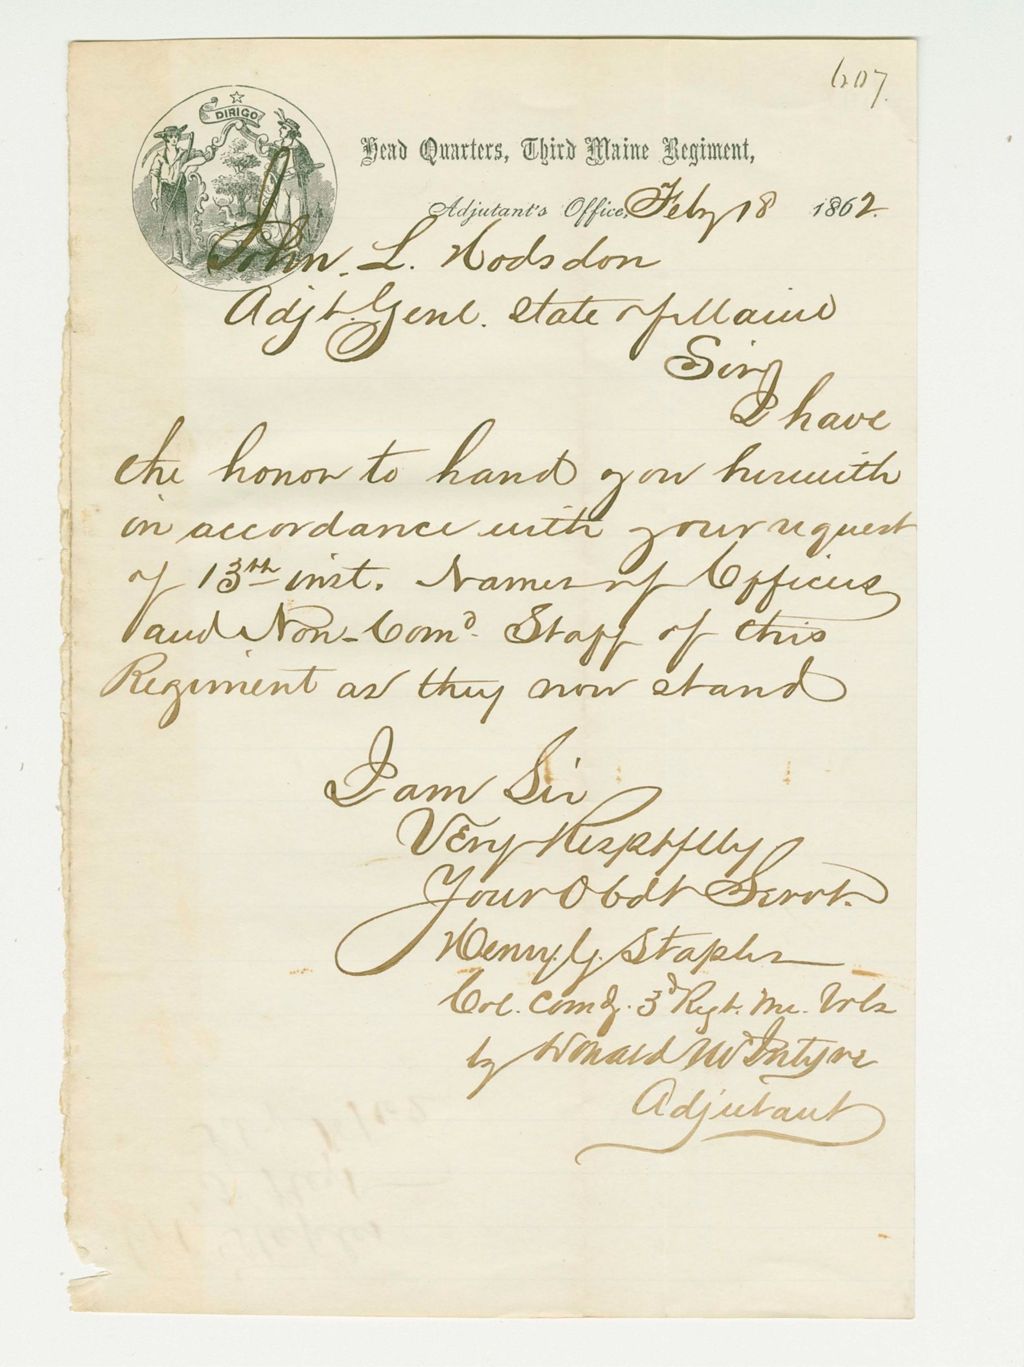 607.
DIRIGO
Head Quarters, Third Maine Regiment,
Adjutant's Office, Feby 18 1862.
John. L. Hodsdon
Adjt. Genl. State of Maine
Sir,
I have
the honor to hand you herewith
in accordance with your request
of 13th inst. Names of Officers
and Non-Comd. Staff of this
Regiment as they now stand
I am Sir
Very Respctflly
Your Obdt Servt.
Henry. G. Staples
Col. Comdg. 3d Regt. Me. Vols
by Donald McIntyre
Adjutant